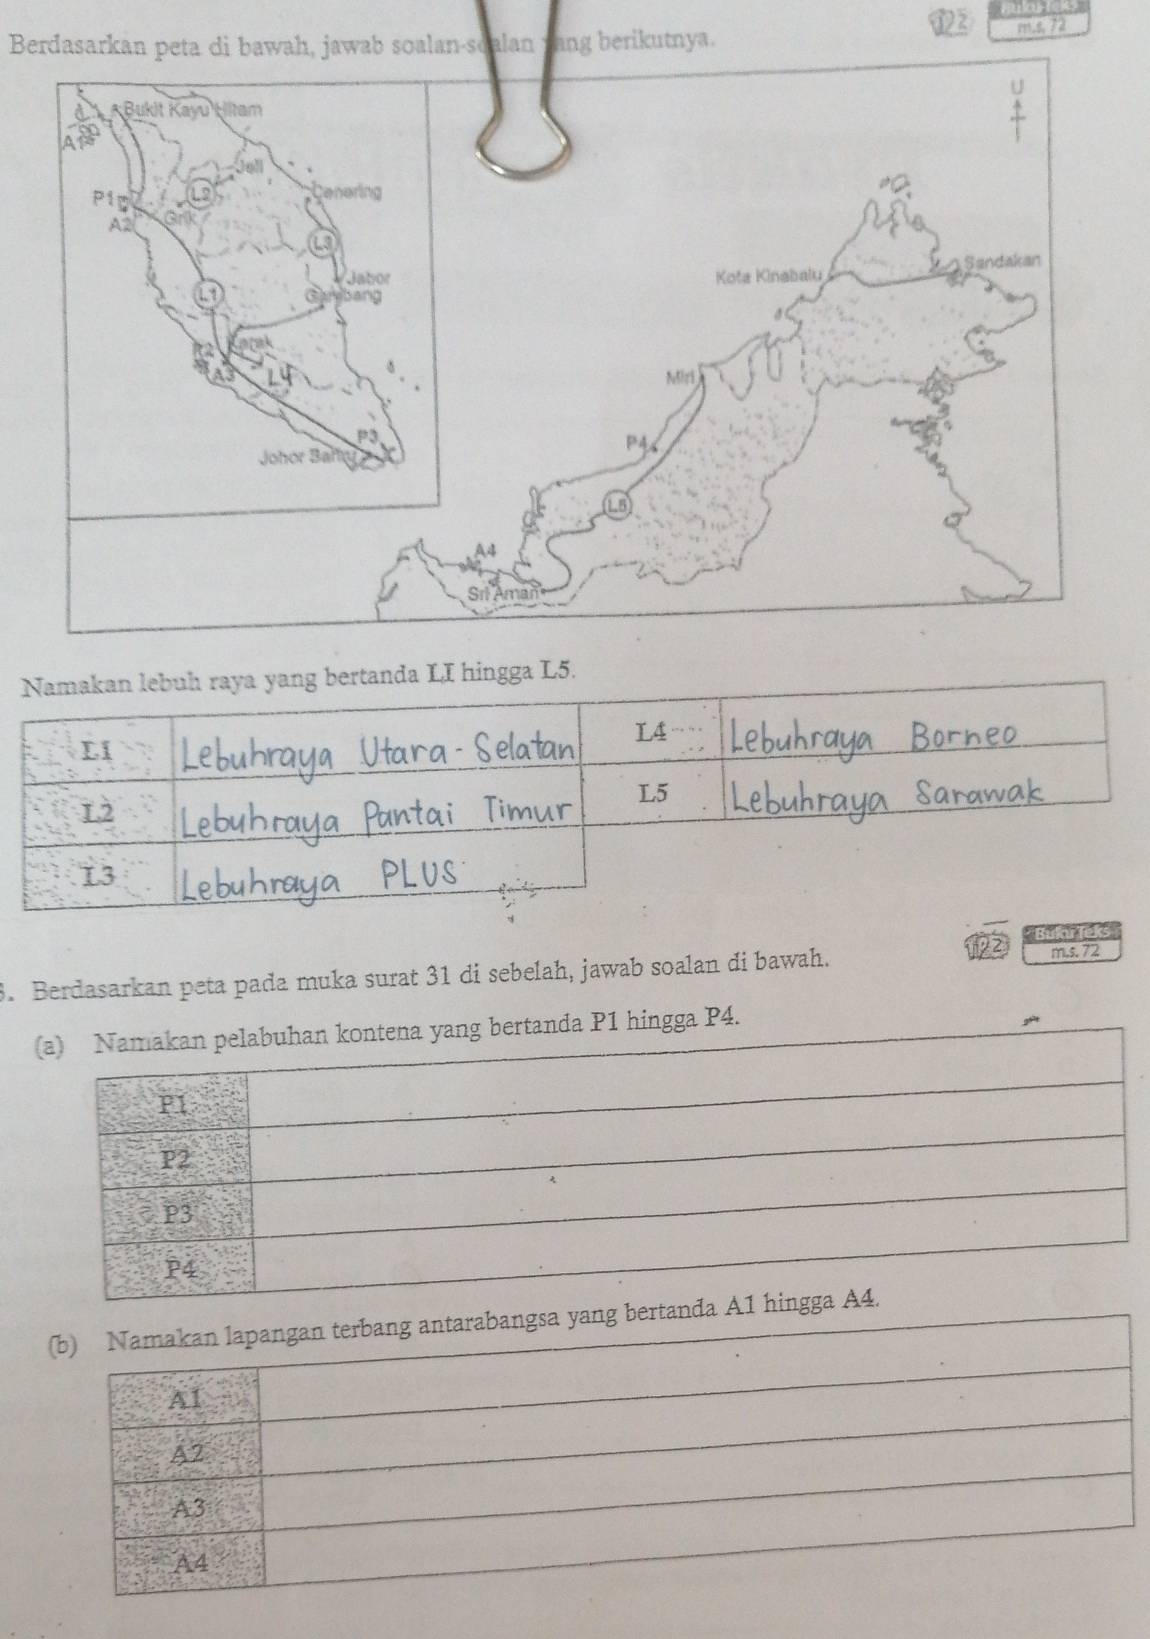 Buku Teks
122 m.s. 72
Berdasarkan peta di bawah, jawab soalan-soalan yang berikutnya.
U
Bukit Kayu Hitam
A1
Jeli
P1
L2
Cenering
A2
Grik
L3
Jabor
Kota Kinabalu
Sandakan
L1
Gambang
P2
Karak
A3
L4
Miri
P3
P4
Johor Bahru
L5
A4
Sri Aman
Namakan lebuh raya yang bertanda L1 hingga L5.
L1 Lebuhraya Utara - Selatan L4 Lebuhraya Borneo
L2 Lebuhraya Pantai Timur L5 Lebuhraya Sarawak
L3 Lebuhraya PLUS
122 Buku Teks
m.s. 72
3. Berdasarkan peta pada muka surat 31 di sebelah, jawab soalan di bawah.
(a) Namakan pelabuhan kontena yang bertanda P1 hingga P4.
P1
P2
P3
P4
(b) Namakan lapangan terbang antarabangsa yang bertanda A1 hingga A4.
A1
A2
A3
A4